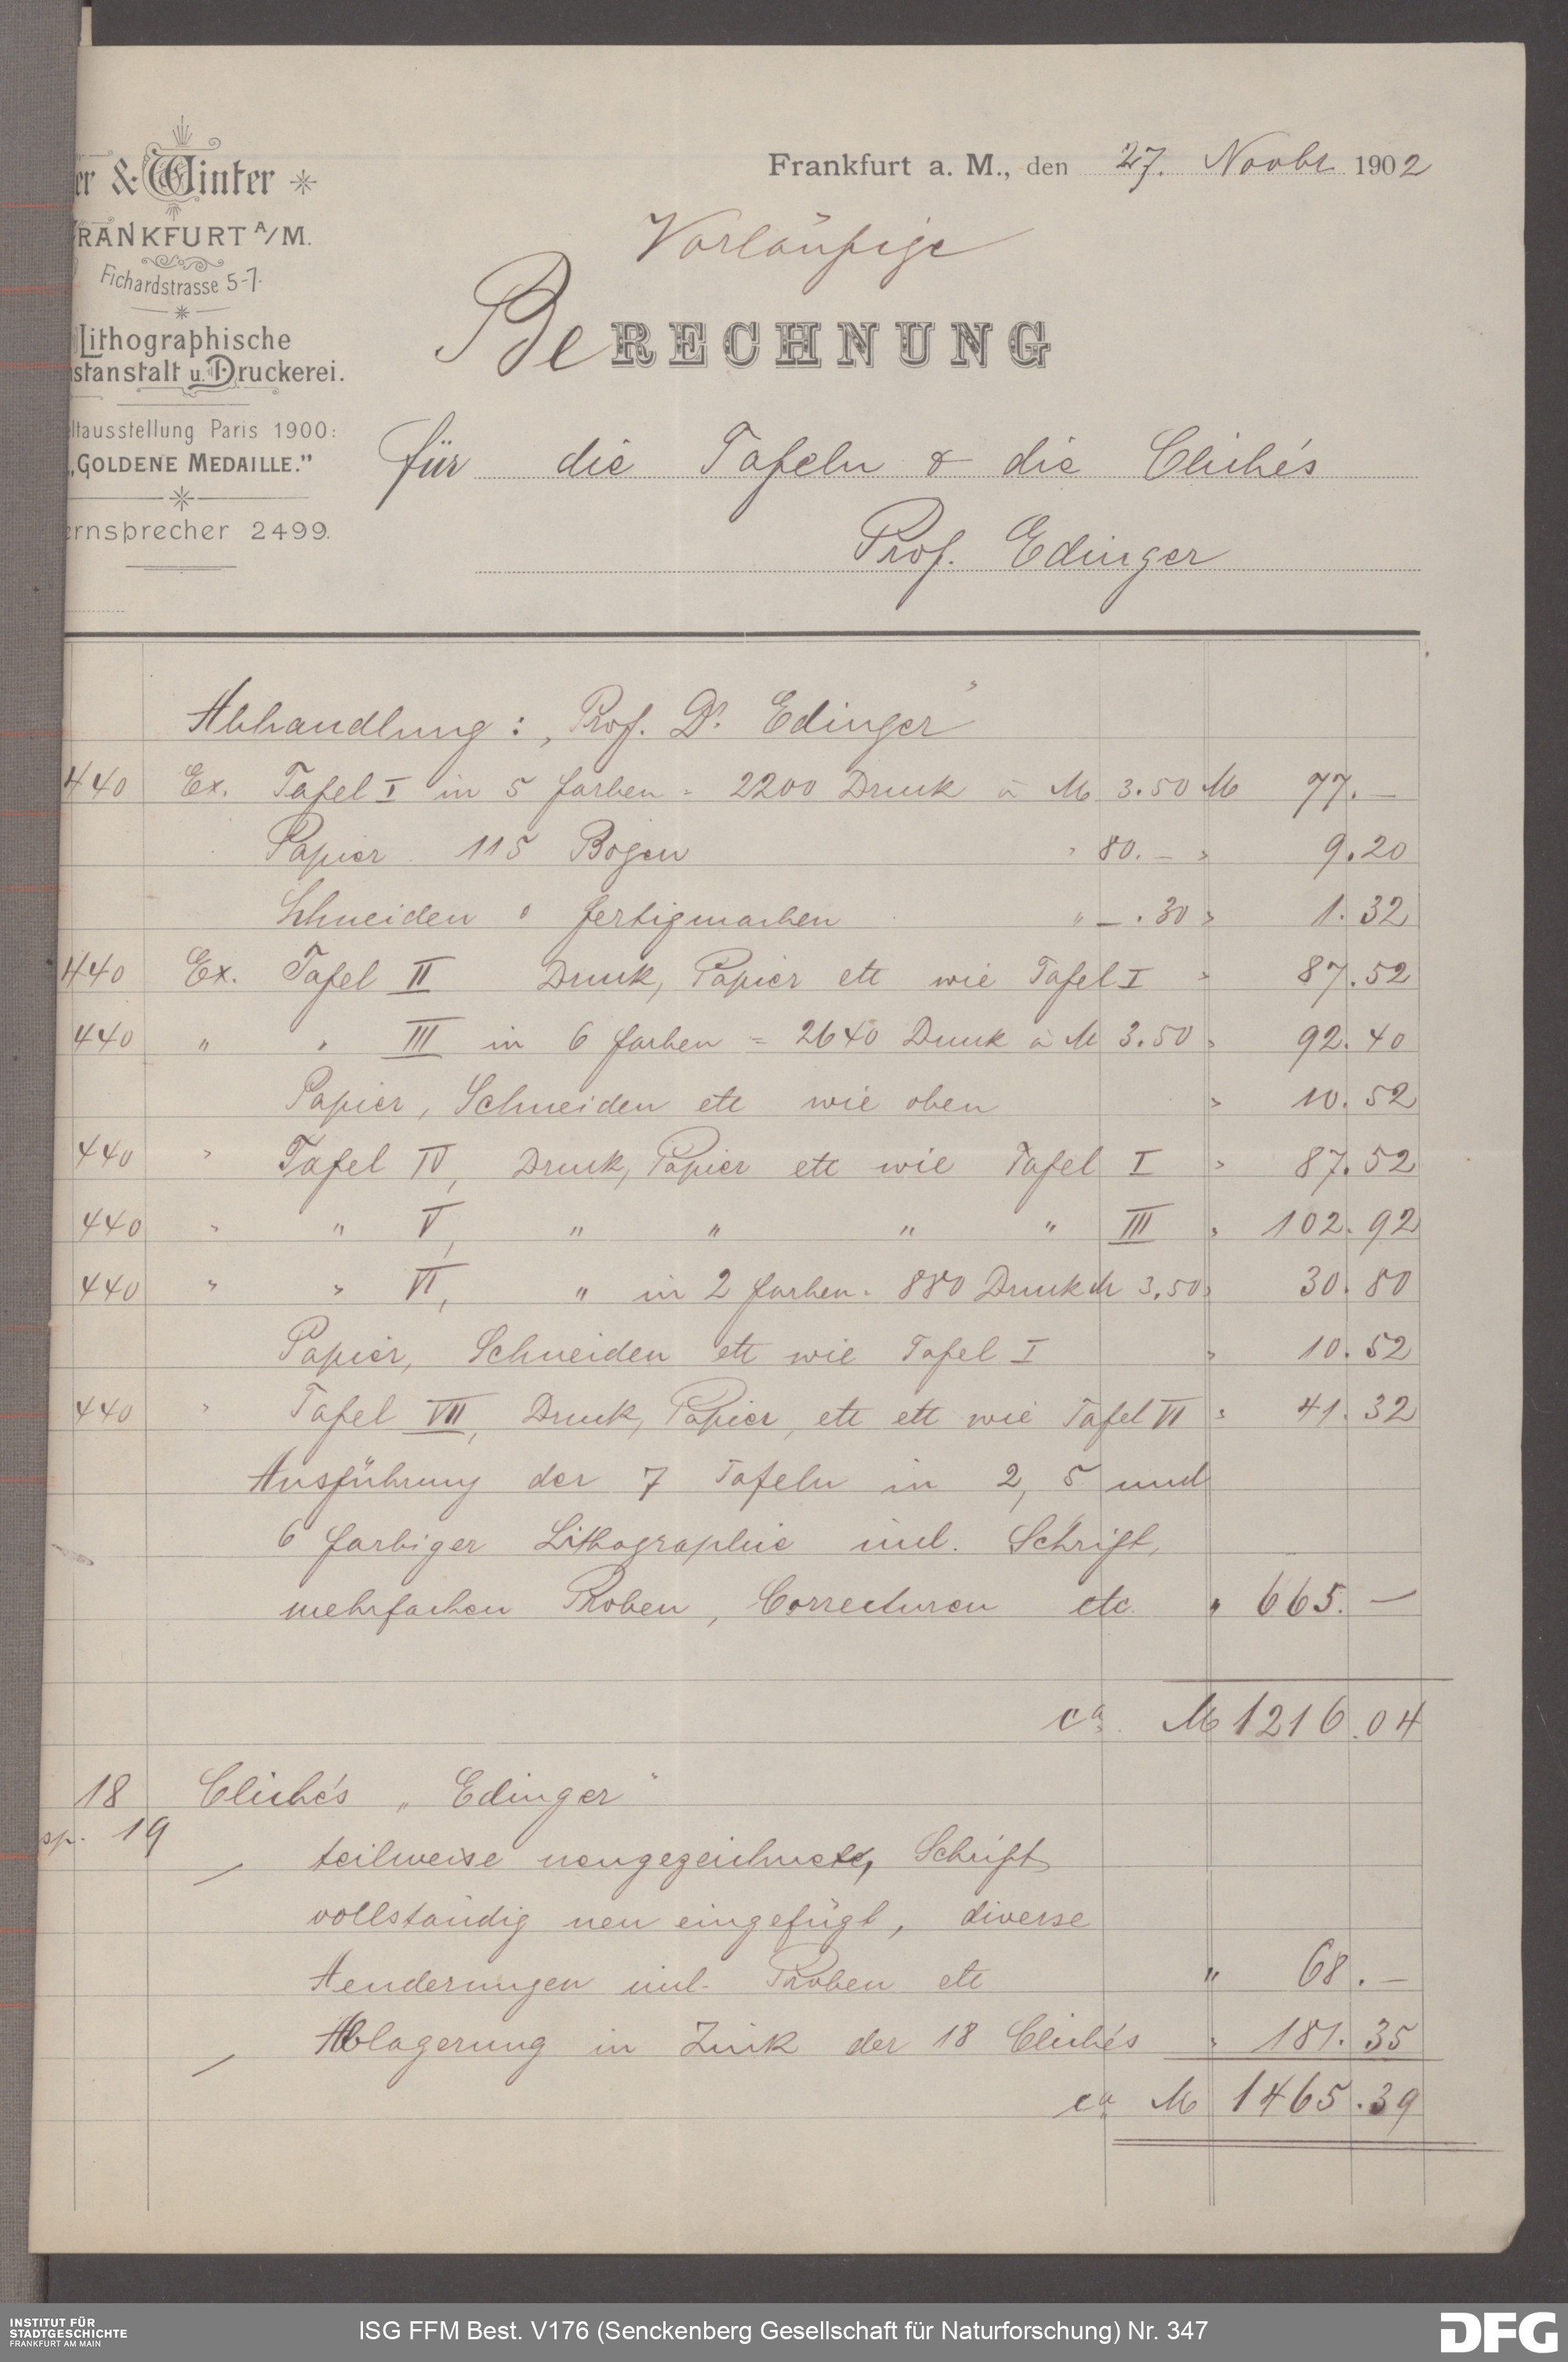 er & Winter
FRANKFURT A/M.
Fichardstrasse 5-7.
Lithographische
stanstalt u. Druckerei.
ltausstellung Paris 1900:
„GOLDENE MEDAILLE."
ernsprecher 2499.
Frankfurt a. M., den 27. Novbr 1902
Vorläufige
BeRECHNUNG
für die Tafeln & die Clichés
Prof. Edinger
Abhandlung: „Prof. Dr. Edinger"
440 Ex. Tafel I in 5 Farben = 2200 Druck à M 3.50 M 77.—
Papier 115 Bogen " 80.— " 9.20
Schneiden & fertigmachen " —.30 " 1.32
440 Ex. Tafel II Druck, Papier etc wie Tafel I " 87.52
440 " " III in 6 Farben = 2640 Druck à M 3.50 " 92.40
Papier, Schneiden etc wie oben " 10.52
440 " Tafel IV, Druck, Papier etc wie Tafel I " 87.52
440 " " V, " " " " III " 102.92
440 " " VI, " in 2 Farben = 880 Druck M 3.50 " 30.80
Papier, Schneiden etc wie Tafel I " 10.52
440 " Tafel VII, Druck, Papier, etc etc wie Tafel VI " 41.32
Ausführung der 7 Tafeln in 2, 5 und
6 farbiger Lithographie incl. Schrift,
mehrfachen Proben, Correcturen etc. " 665.—
ca. M 1216.04
18 Clichés „Edinger"
sp. 19
teilweise neugezeichnete, Schrift
vollständig neu eingefügt, diverse
Aenderungen incl. Proben etc " 68.—
Ablagerung in Zink der 18 Clichés " 181.35
ca M 1465.39
INSTITUT FÜR
STADTGESCHICHTE
FRANKFURT AM MAIN
ISG FFM Best. V176 (Senckenberg Gesellschaft für Naturforschung) Nr. 347
DFG